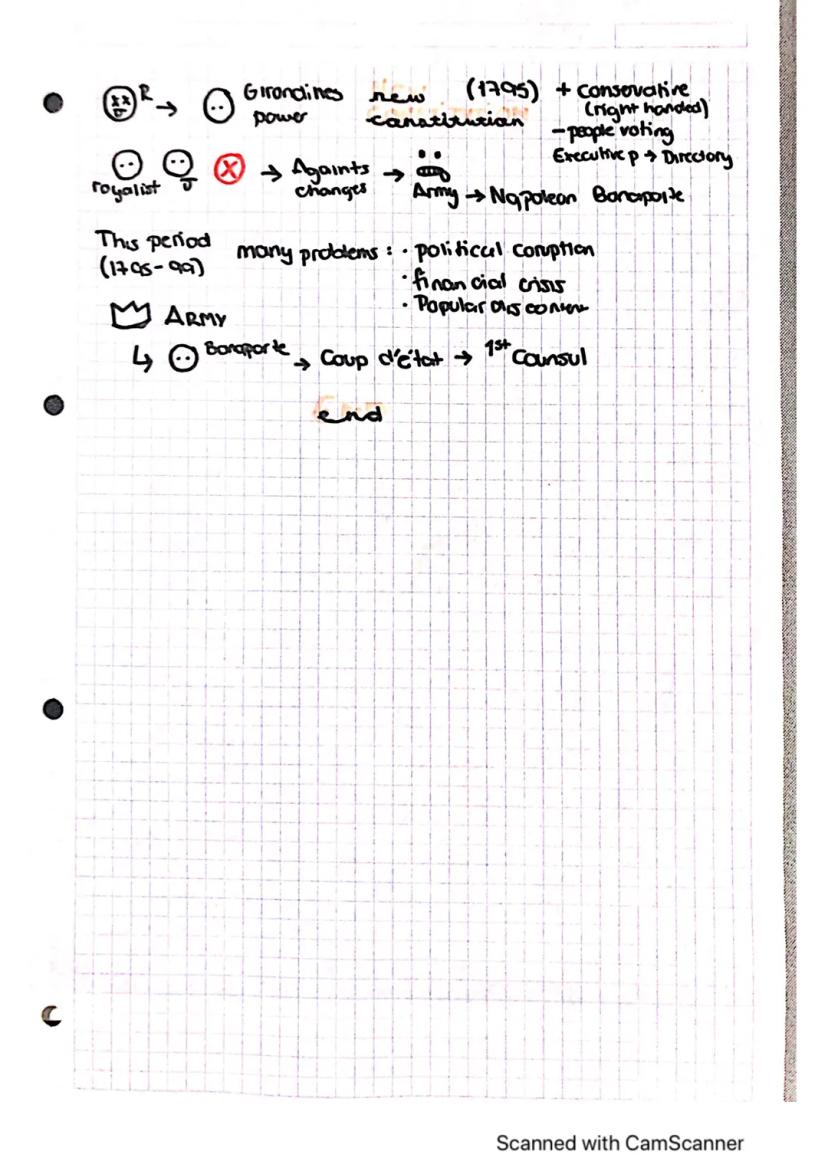 R → Girondines new (1795) + conservative
power constitution (right handed)
- people voting
Executive p → Directory
royalist J X → Againts → Army → Napolean Bonaparte
changes
This period many problems : · political coruption
(1795-99) · financial crisis
· Popular
ARMY
↳ Bonaparte → Coup d'état → 1st Counsul
end
Scanned with CamScanner